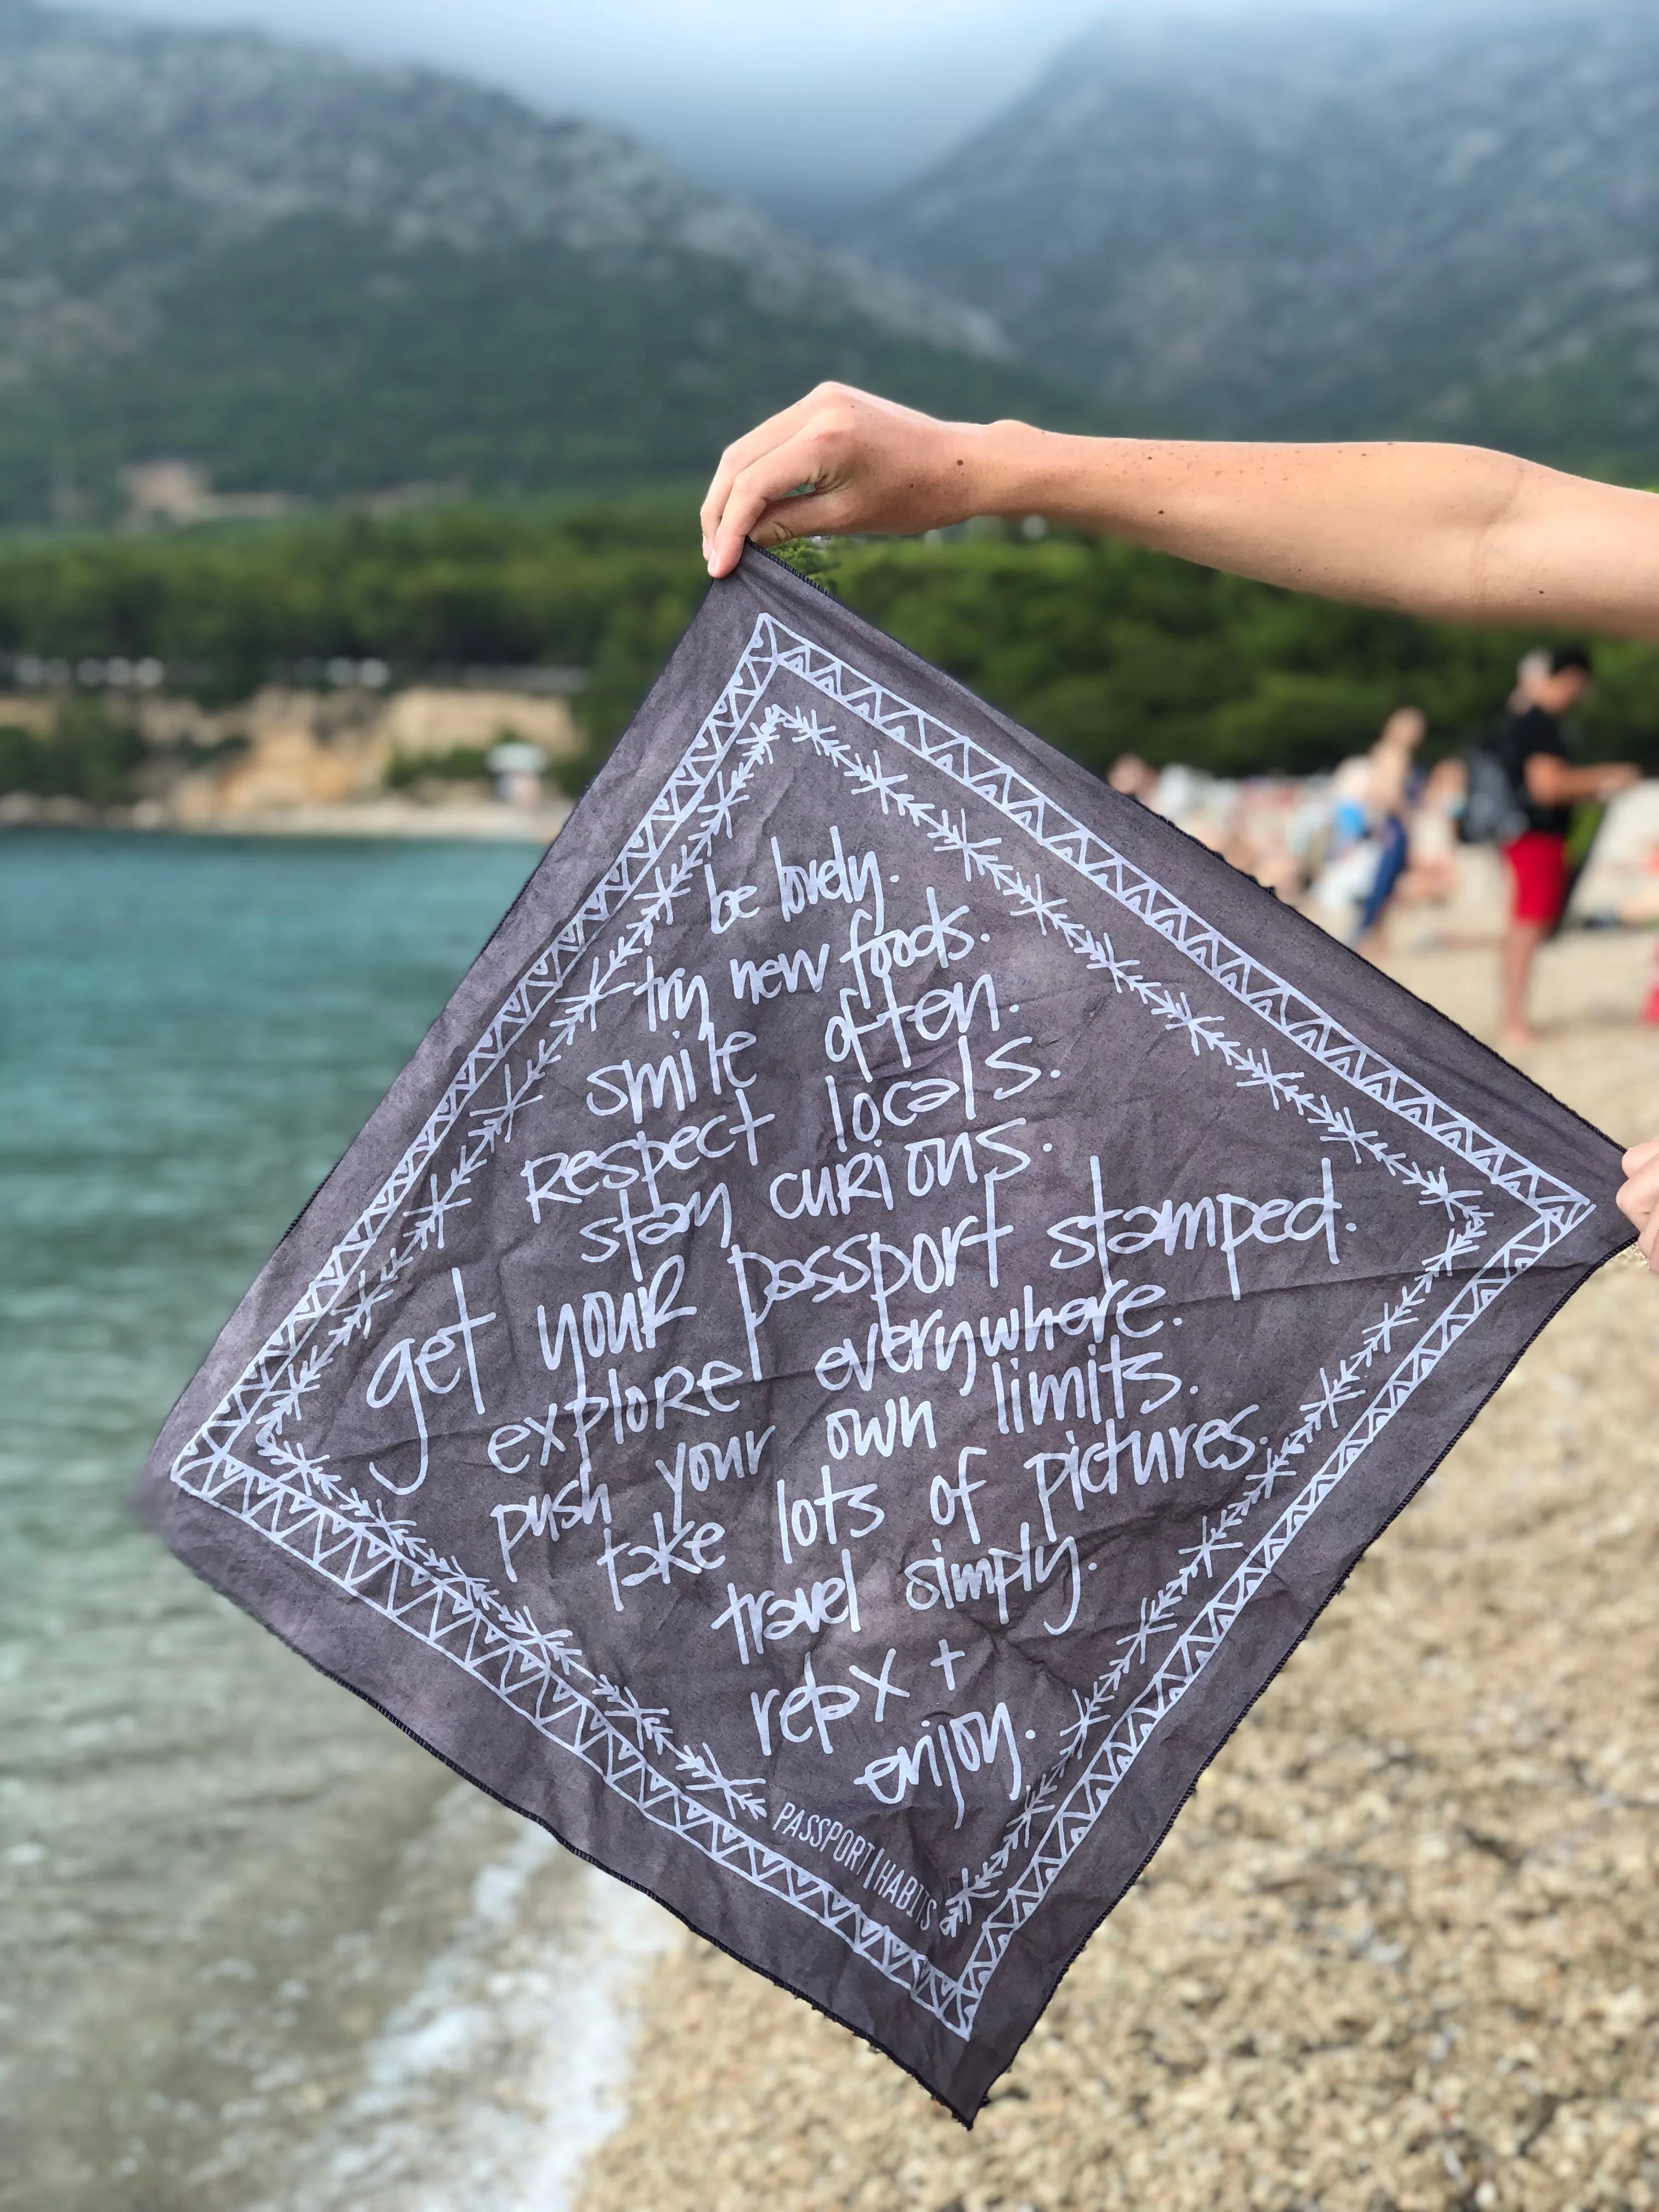 be lovely.
try new foods.
smile often.
respect locals.
stay curious.
get your passport stamped.
explore everywhere.
push your own limits.
take lots of pictures.
travel simply.
relax +
enjoy.
PASSPORT|HABITS